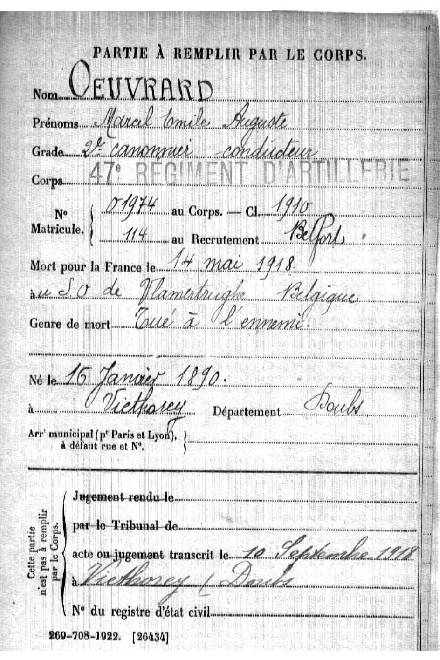 PARTIE À REMPLIR PAR LE CORPS.
Nom OEUVRARD
Prénoms Marcel Emile Auguste
Grade 2e canonnier conducteur
Corps 47e RÉGIMENT D'ARTILLERIE
N° Matricule. { 01974 au Corps. — Cl. 1910
114 au Recrutement Belfort
Mort pour la France le 14 mai 1918
au S.O de Vlamertinghe Belgique
Genre de mort Tué à l'ennemi
Né le 16 Janvier 1890.
à Viethorey Département Doubs
Arrt municipal (pr Paris et Lyon), à défaut rue et N°. }
Cette partie n'est pas à remplir par le Corps.
Jugement rendu le
par le Tribunal de
acte ou jugement transcrit le 10 Septembre 1918
à Viethorey (Doubs
N° du registre d'état civil
269-708-1922. [26434]